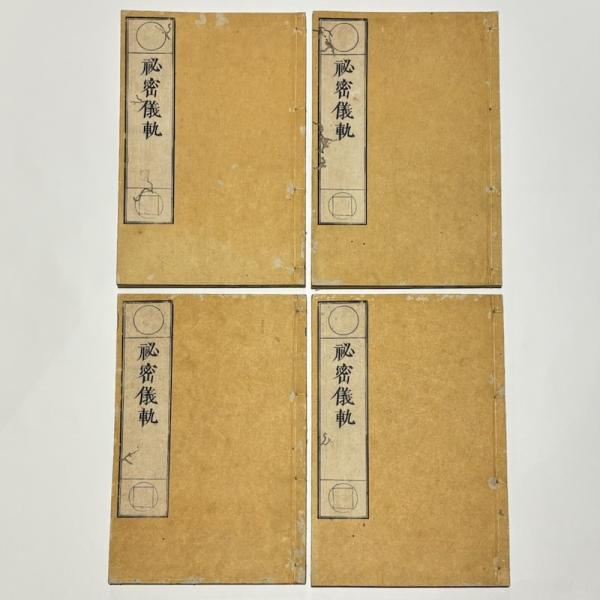 祕密儀軌
祕密儀軌
祕密儀軌
祕密儀軌